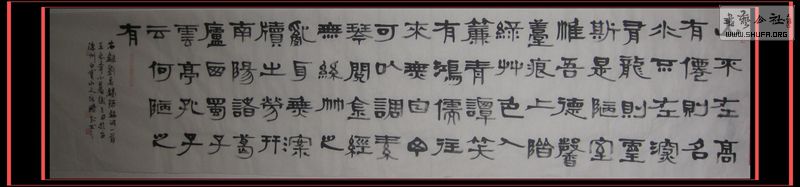 山不在高
有僊則名
水不在深
有龍則靈
斯是陋室
惟吾德馨
薹痕上階
綠艸色入
簾青譚笑
有鴻儒往
來無白丁
可以調素
琴閱金經
無絲竹之
亂耳無案
牘之勞形
南陽諸葛
廬西蜀子
雲亭孔子
云何陋之
有
右錄劉禹錫陋室銘一首
公社
WWW.SHUFA.ORG